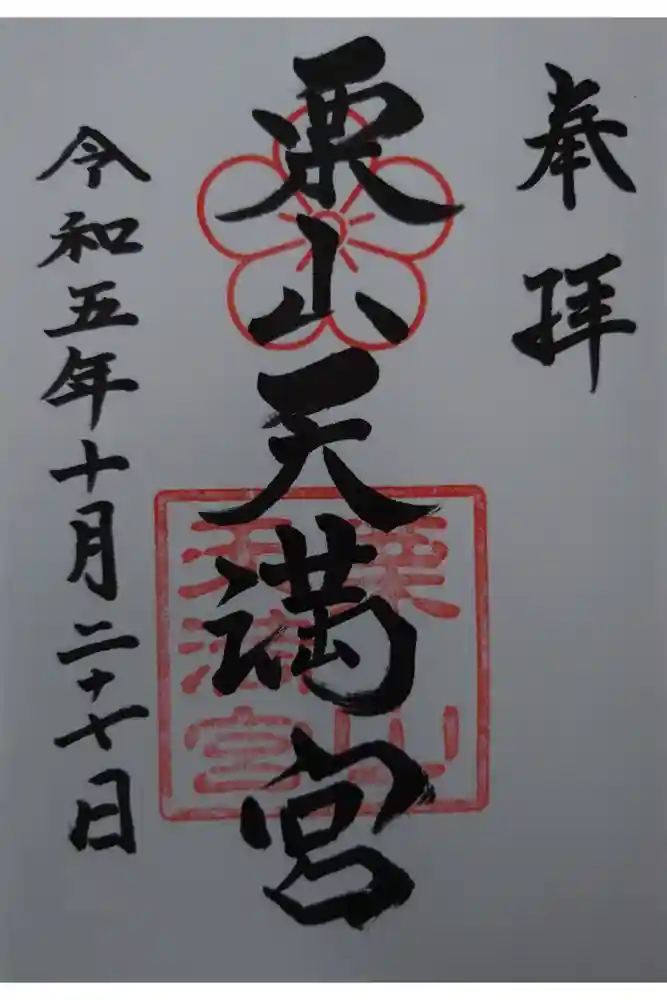 奉拝
栗山天満宮
栗山
天満宮
令和五年十月二十七日